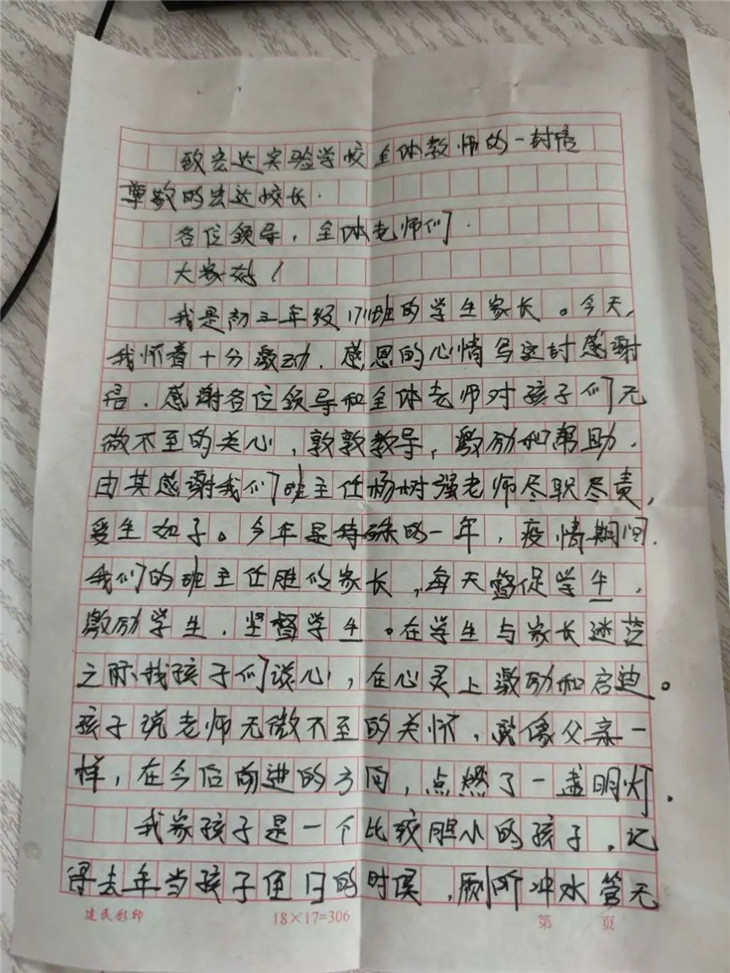 致宏达实验学校全体教师的一封信
尊敬的宏达校长.
各位领导，全体老师们.
大家好！
我是初三年级1711班的学生家长。今天，
我怀着十分激动、感恩的心情写这封感谢
信．感谢各位领导和全体老师对孩子们无
微不至的关心，敦敦教导，激励和帮助．
由其感谢我们班主任杨树强老师尽职尽责，
爱生如子。今年是特殊的一年，疫情期间．
我们的班主任胜似家长，每天督促学生，
激励学生．坚督学生。在学生与家长迷茫
之际、找孩子们谈心，在心灵上激励和启迪。
孩子说老师无微不至的关怀，就像父亲一
样，在今后前进的方向，点燃了一盏明灯．
我家孩子是一个比较胆小的孩子．记
得去年当孩子值日的时侯，厕所冲水管无
建民彩印 18×17=306 第 页